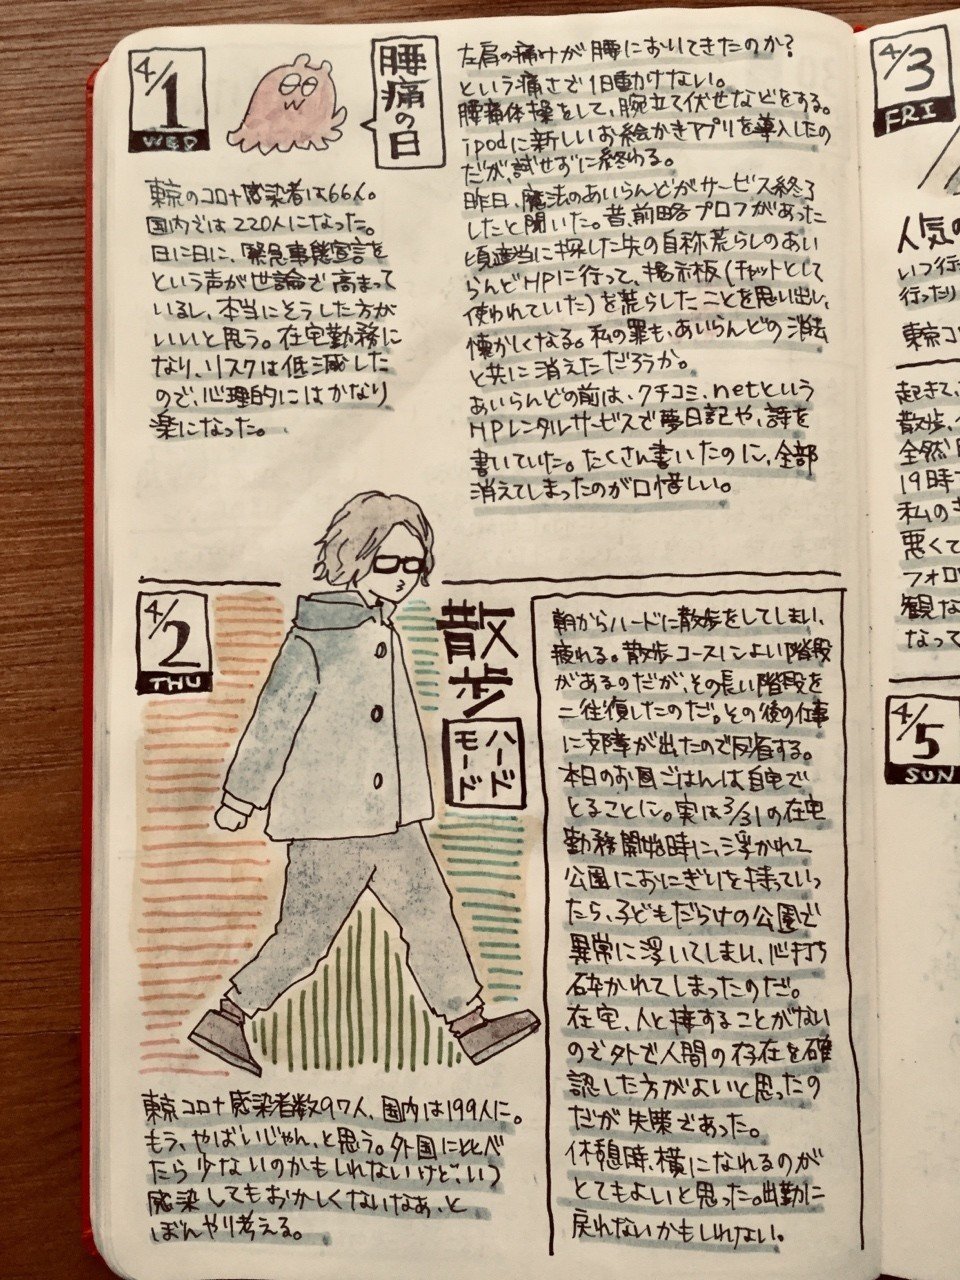 4/1
WED
腰痛の日
東京のコロナ感染者は66人。
国内では220人になった。
日に日に、緊急事態宣言を
という声が世論で高まって
いるし、本当にそうした方が
いいと思う。在宅勤務に
なり、リスクは低減した
ので、心理的にはかなり
楽になった。
左肩の痛みが腰においてきたのか?
という痛さで1日動けない。
腰痛体操をして、腕立て伏せなどをする。
ipodに新しいお絵かきアプリを導入したの
だが、試せずに終わる。
昨日、魔法のあいらんどがサービス終了
したと聞いた。昔、前略プロフがあった
頃適当に探した先の自称荒らしのあい
らんどHPに行って、掲示板(チャットとして
使われていた)を荒らしたことを思い出し、
懐かしくなる。私の罪も、あいらんどの消去
と共に消えただろうか。
あいらんどの前は、クチコミ.netという
HPレンタルサービスで夢日記や、詩を
書いていた。たくさん書いたのに、全部
消えてしまったのが口惜しい。
4/2
THU
散歩
ハード
モード
朝からハードに散歩をしてしまい、
疲れる。散歩コースによい階段
があるのだが、その長い階段を
二往復したのだ。その後の仕事
に支障が出たので反省する。
本日のお昼ごはんは自宅で
とることに。実は3/31の在宅
勤務開始時に、浮かれて
公園におにぎりを持っていっ
たら、子どもだらけの公園で
異常に浮いてしまい、心打ち
砕かれてしまったのだ。
在宅、人と接することがない
ので外で人間の存在を確
認した方がよいと思ったの
だが失策であった。
休憩時、横になれるのが
とてもよいと思った。出勤に
戻れないかもしれない。
東京コロナ感染者数97人、国内は199人に。
もう、やばいじゃん、と思う。外国に比べ
たら少ないのかもしれないけど、いつ
感染してもおかしくないなぁ、と
ぼんやり考える。
4/3
FRI
人気の
いつ行
行ったり
東京コ
起きて、
散歩、
全然
19時
私の
悪くて
フォロ
観な
なって
4/5
SUN